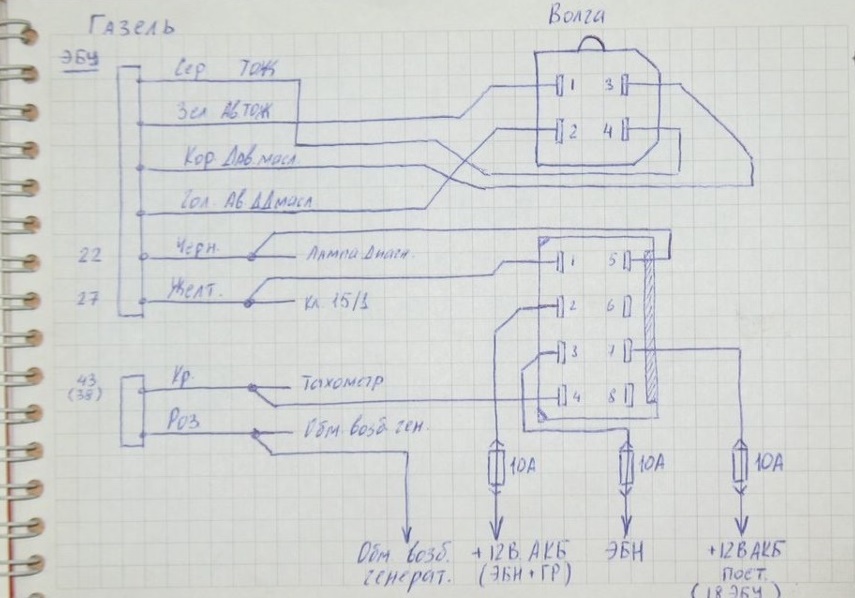 Газель
Волга
ЭБУ
Сер ТОЖ
Зел Ав ТОЖ
Кор Дав. масл
Гол. Ав ДДмасл
1 3
2 4
22 Черн. Лампа Диагн.
27 Желт. Кл. 15/1
1 5
2 6
3 7
4 8
43
(38)
Кр. Тахометр
Роз Обм возб. ген.
10А 10А 10А
Обм. возб.
генерат.
+12В. АКБ
(ЭБН + ГР)
ЭБН
+12В АКБ
пост.
(18 ЭБУ)